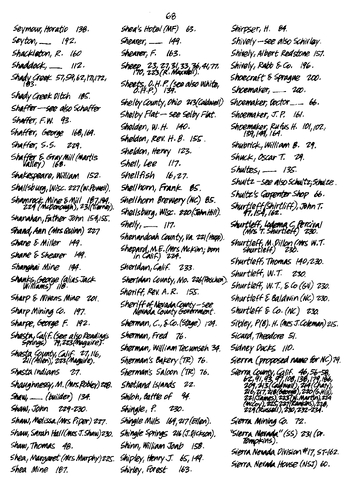 68
Seymour, Horatio 138.
Seyton, 192.
Shackleton, R. 160
Shaddock, 112.
Shady Creek 57, 59, 62, 170, 172,
183.
Shady Creek Ditch 185.
Shaffer—see also Schaffer
Shaffer, F.W. 93.
Shaffer, George 168, 169.
Shaffer, S.S. 229.
Shaffer & Gray Mill (Martis
Valley) 168.
Shakespeare, William 152.
Shallsburg, Wisc. 227
Shamrock Mine & Mill
Shanahan, Father John 154, 155.
Shand, Ann (Mrs Quinn) 227
Shane & Miller 149.
Shane & Shearer 149.
Shanghai Mine 194.
Shanks, George (alias Jack
Williams) 118.
Sharp & Nivens Mine 201.
Sharp Mining Co. 197.
Sharpe, George F. 192.
Shasta, Calif.
Shasta County, Calif. 27, 116,
Shasta Indians 27.
Shaughnessy, M. (Mrs
Shaw, (builder) 134.
Shaw, John 229-230.
Shaw, Melissa (Mrs Piper) 227.
Shaw, Sarah Hall (Mrs J. Shaw) 230.
Shaw, Thomas 48.
Shea, Margaret (Mrs Murphy) 225.
Shea Mine 187.
Shea's Hotel (MF) 63.
Shearer, 149.
Shearer, F. 163.
Sheep 23, 27, 31, 33, 36, 41, 77,
170, 223
Sheets, O.H.P. (see also White,
O.H.P.) 134.
Shelby County, Ohio 213 (Caldwell)
Shelby Flat — see Selby Flat.
Shelden, W.H. 140.
Sheldon, Rev. H.B. 155.
Sheldon, Henry 123.
Shell, Lee 117.
Shellfish 16, 27.
Shellhorn, Frank 85.
Shellhorn Brewery (NC) 85.
Shellsburg, Wisc. 220
Shelly, 117.
Shenandoah County, Va. 221
Shepard, M.E. (Mrs McKim; born
in Calif) 224.
Sheridan, Calif. 233.
Sheridan County, Mo. 226
Sheriff, Rev. A.R. 155.
Sheriff of Nevada County—see
Nevada County Government.
Sherman, C., & Co. (Stage) 124.
Sherman, Fred 76.
Sherman, William Tecumseh 34.
Sherman's Bakery (TR) 76.
Sherman's Saloon (TR) 76.
Shetland Islands 22.
Shiloh, battle of 94
Shingle, P. 230.
Shingle Mills 164, 217
Shingle Springs 216 (J. Dickson).
Shinn, William Jenb 158.
Shipley, Henry J. 65, 149.
Shirley, Forest 163.
Shirpser, H. 84.
Shively—see also Schirley.
Shirely, Albert Redstone 157.
Shirely, Rabb & Co. 196.
Shoecraft & Sprague 200.
Shoemaker, 200.
Shoemaker, Doctor 66.
Shoemaker, J.P. 161.
Shoemaker, Rufus H. 101, 102,
139, 149, 164.
Shubrick, William B. 29.
Shuck, Oscar T. 29.
Shultes, 135.
Shultz—see also Schultz; Schulze.
Shultz's Carpenter Shop 66.
Shurtleff (Shirtleff), John T.
97, 154, 162.
Shurtleff,
(Mrs T. Shurtleff) 230.
Shurtleff, M. Dillon (Mrs W.T.
Shurtleff) 230.
Shurtleff, Thomas 140, 230.
Shurtleff, W.T. 230
Shurtleff, W.T., & Co (GV) 230.
Shurtleff & Baldwin (NC) 230.
Shurtleff & Co. (NC) 230.
Sibley, P/B). H. (Mrs J. Coleman) 215.
Sicard, Theodore 51.
Sidney Ducks 110.
Sierra (proposed name for NC) 79.
Sierra County, Calif. 46, 56-58,
Sierra Mining Co. 72.
"Sierra Nevada" (SS) 231 (Dr.
Tompkins).
Sierra Nevada Division #17, ST-162.
Sierra Nevada House (NSJ) 60.